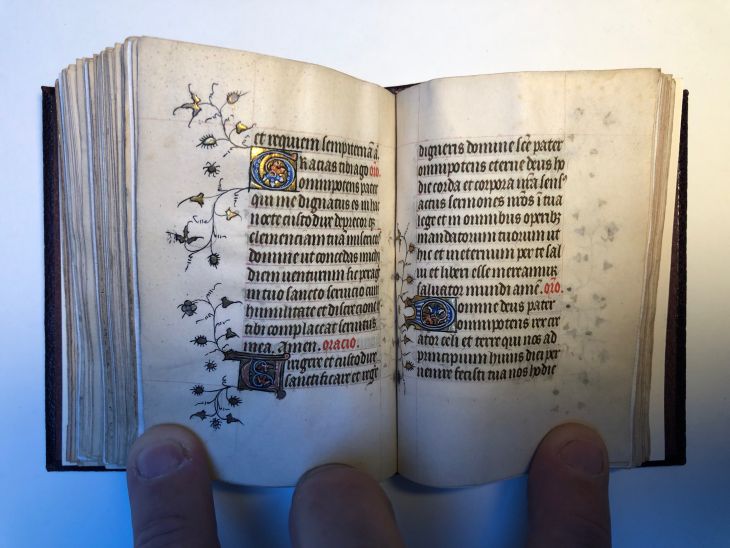 et requiem sempiternā ā.
Gracias tibi ago orō.
omnipotens pater
qui me dignatus es in hac
nocte custodire deprecor
clemenciam tuā misericor
domine ut concedas michi
diem uenturum sic perag
in tuo sancto seruicio cum
humilitate et discrecione
tibi complaceat seruitus
mea. Amen. oracio.
Dirigere et custodire
sanctificare et rege
digneris domine scē pater
omnipotens eterne deus ho
die corda et corpora nrā sensꝰ
actus sermones nrōs ī tua
lege et in omnibus operibz
mandatorum tuorum ut
hic et in eternum per te sal
ui et liberi esse mereamur
saluator mundi amē. orō.
Domine deus pater
omnipotens rex cre
ator celi et terre qui nos ad
principium huius diei per
uenire fecisti tua nos hodie